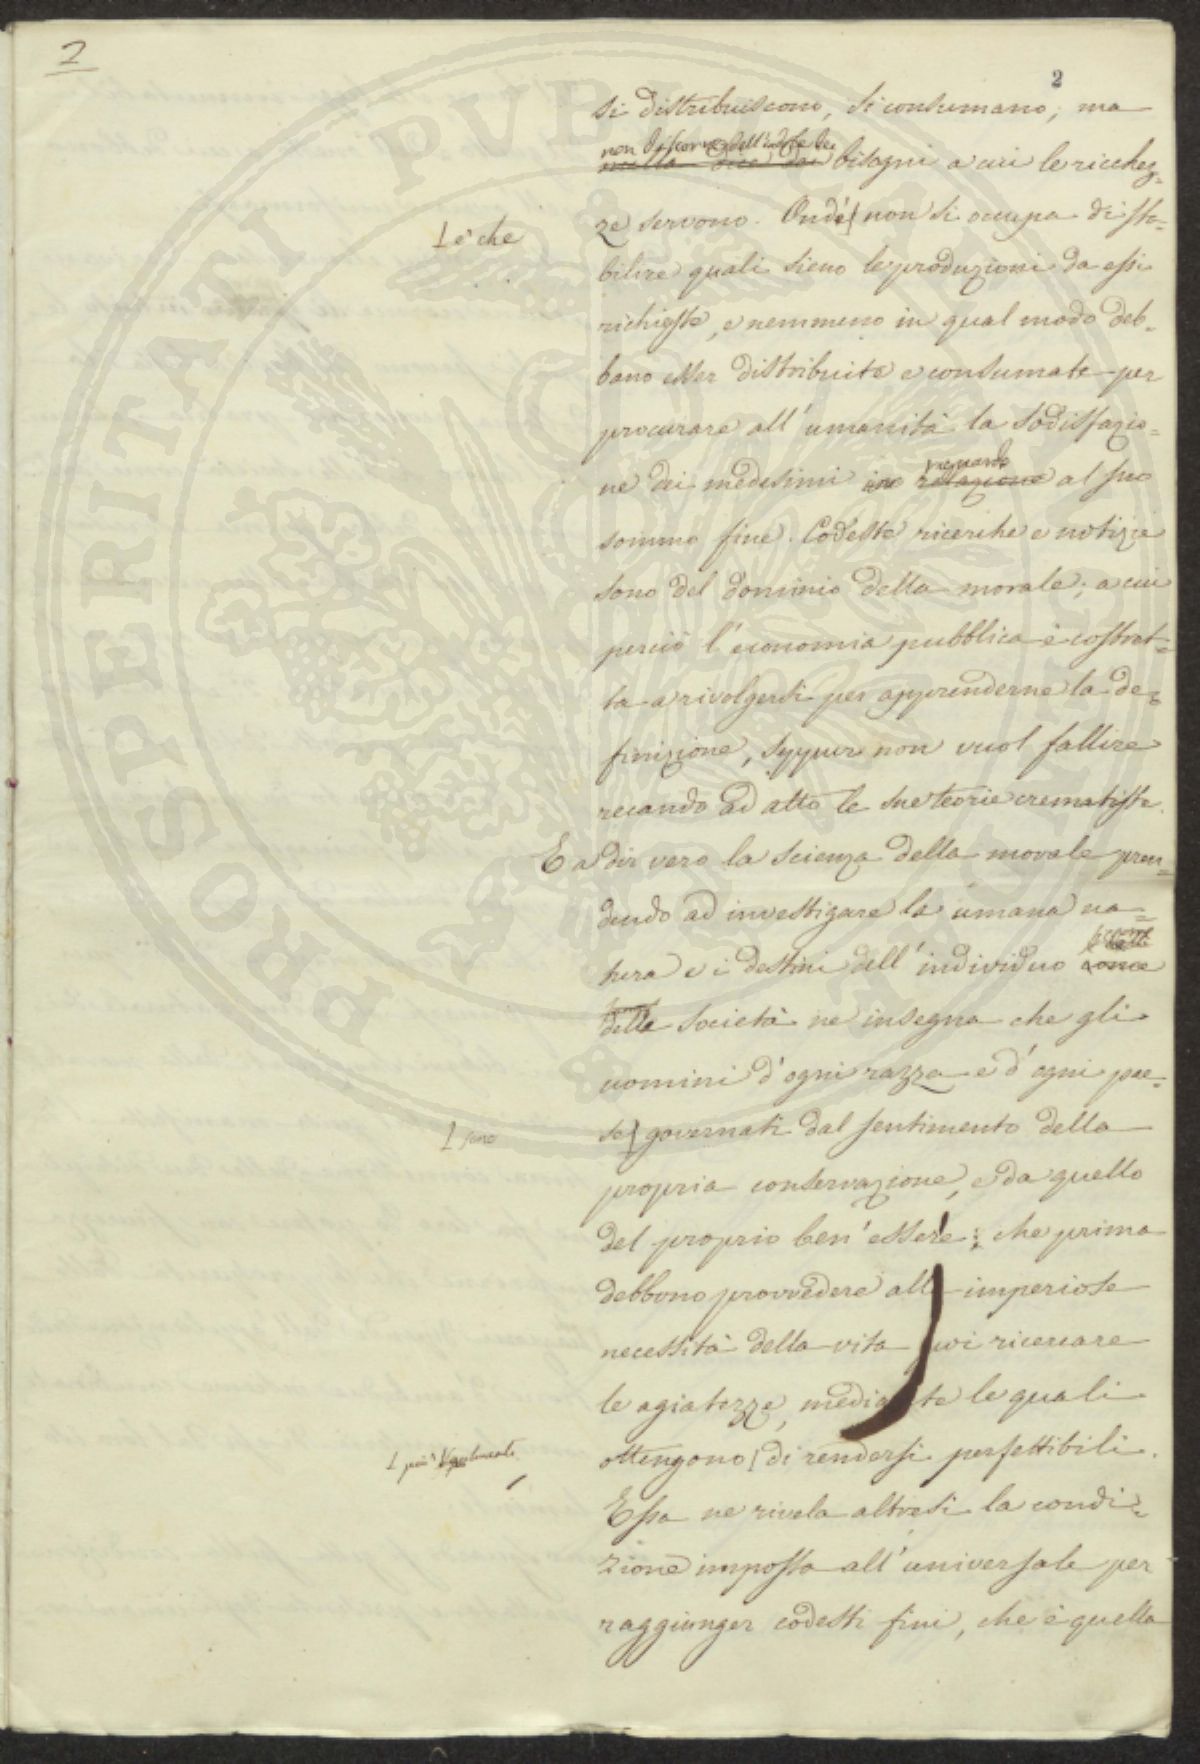 2
2
si distribuiscono, si consumano; ma
non discorre dell'indole dei
nulla dice dei bisogni a cui le ricchez=
ze servono. Ond'è non si occupa di sta=
è che
bilire quali sieno le produzioni da essi
richieste, e nemmeno in qual modo deb=
bano esser distribuite e consumate per
procurare all'umanità la sodisfazio=
riguardo
ne dei medesimi in relazione al suo
sommo fine. Codeste ricerche e notizie
sono del dominio della morale; a cui
perciò l'economia pubblica è costret=
ta a rivolgersi per apprenderne la de=
finizione, seppur non vuol fallire
recando ad atto le sue teorie crematiste.
E a dir vero la scienza della morale pren=
dendo ad investigare la umana na=
tura e i destini dell'individuo come
della società ne insegna che gli
uomini d'ogni razza e d'ogni pae=
se governati dal sentimento della
sono
propria conservazione, e da quello
del proprio ben'essere; che prima
debbono provvedere alle imperiose
necessità della vita poi ricercare
le agiatezze, mediante le quali
ottengono di rendersi perfettibili.
più
Essa ne rivela altresì la condi=
zione imposta all'universale per
raggiunger codesti fini, che è quella
PROSPERITATI PVBL